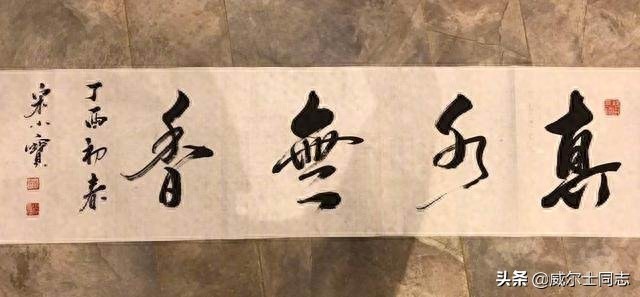 真水無香
丁酉初春
宋小寶
头条 @威尔士同志